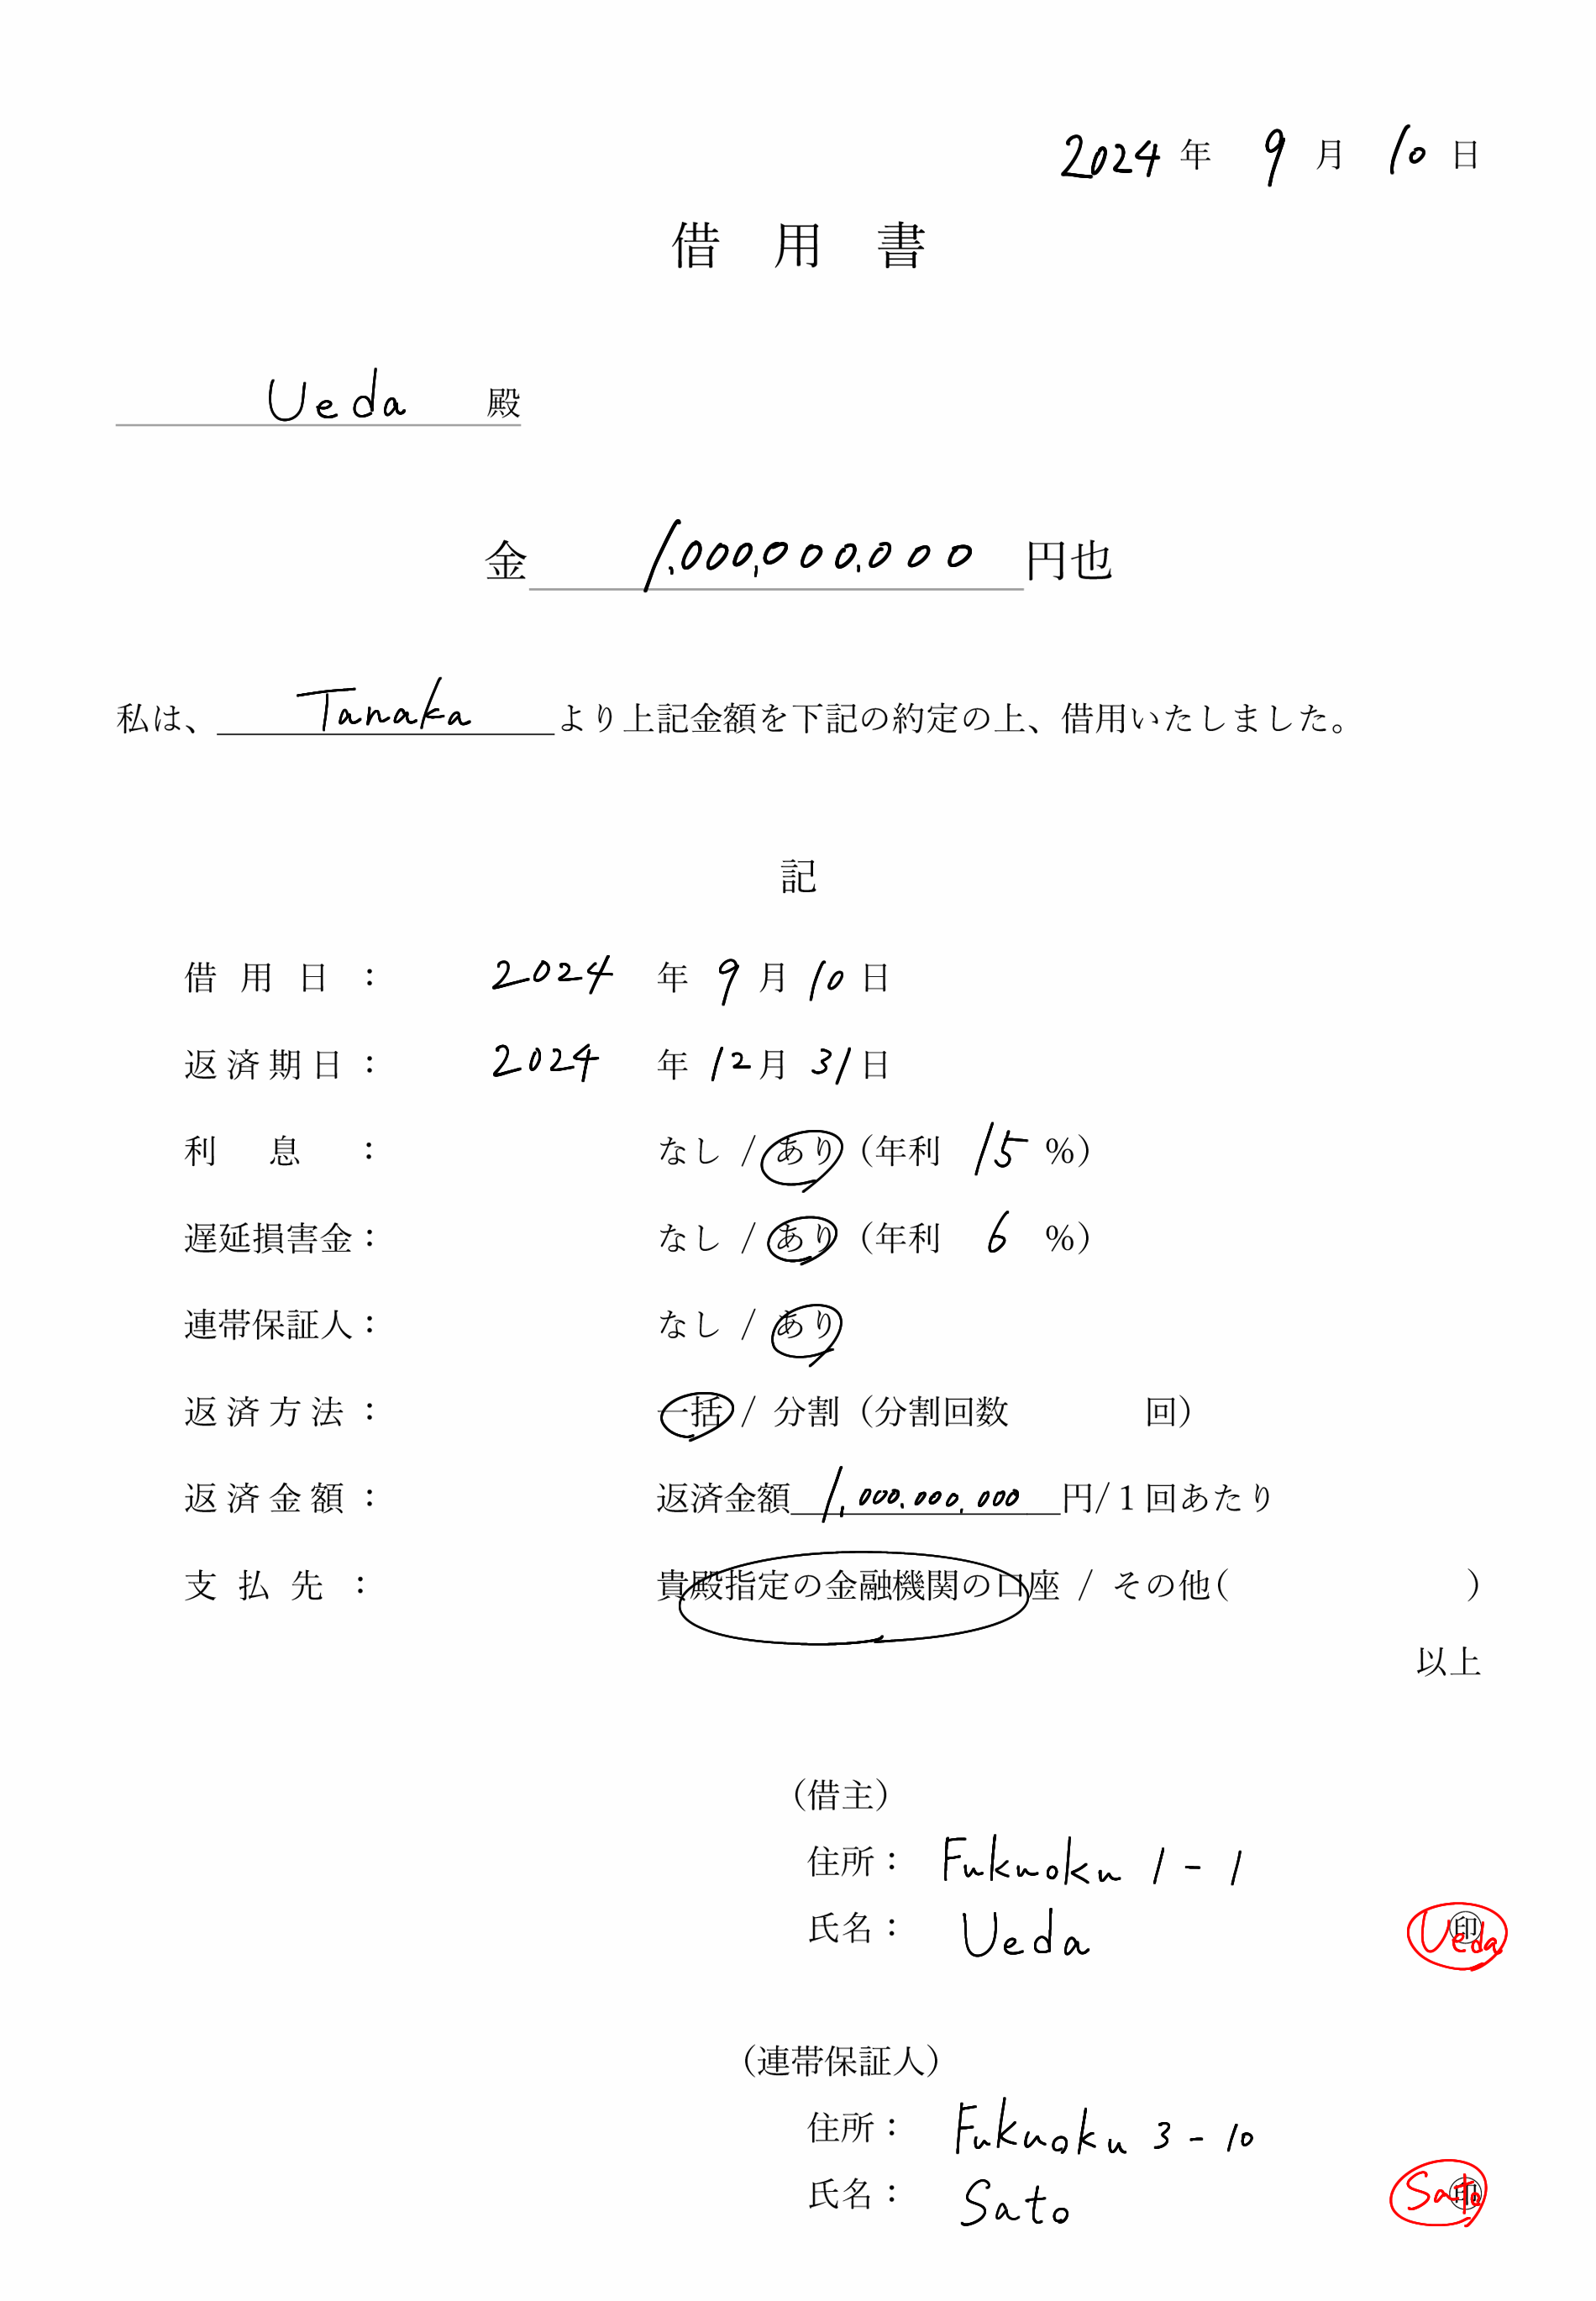 2024 年 9 月 10 日
借 用 書
Ueda 殿
金 1,000,000,000 円也
私は、 Tanaka より上記金額を下記の約定の上、借用いたしました。
記
借 用 日 : 2024 年 9 月 10 日
返 済 期 日 : 2024 年 12 月 31 日
利 息 : なし / あり (年利 15 %)
遅延損害金: なし / あり (年利 6 %)
連帯保証人: なし / あり
返 済 方 法 : 一括 / 分割 (分割回数 回)
返 済 金 額 : 返済金額 1,000,000,000 円/1回あたり
支 払 先 : 貴殿指定の金融機関の口座 / その他( )
以上
(借主)
住所: Fukuoku 1-1
氏名: Ueda 印 Ueda
(連帯保証人)
住所: Fukuoku 3-10
氏名: Sato 印 Sato